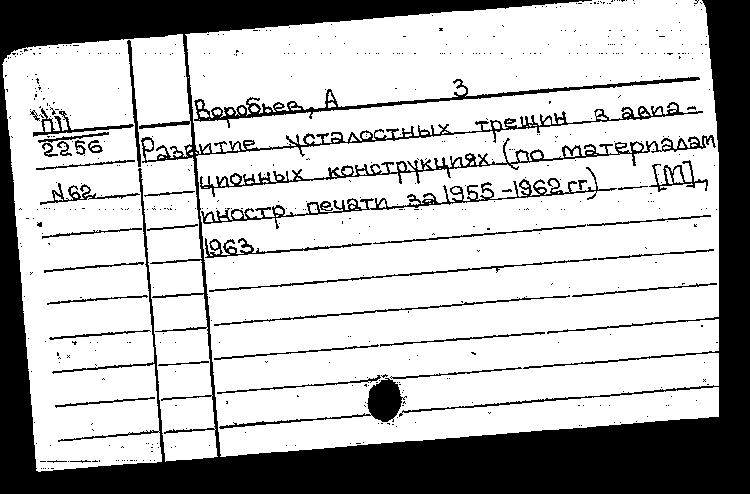 Воробьев, А 3
ПП
2256
N62
Развитие усталостных трещин в авиа-
ционных конструкциях. (по материалам
иностр. печати за 1955-1962 гг.) [М].,
1963.